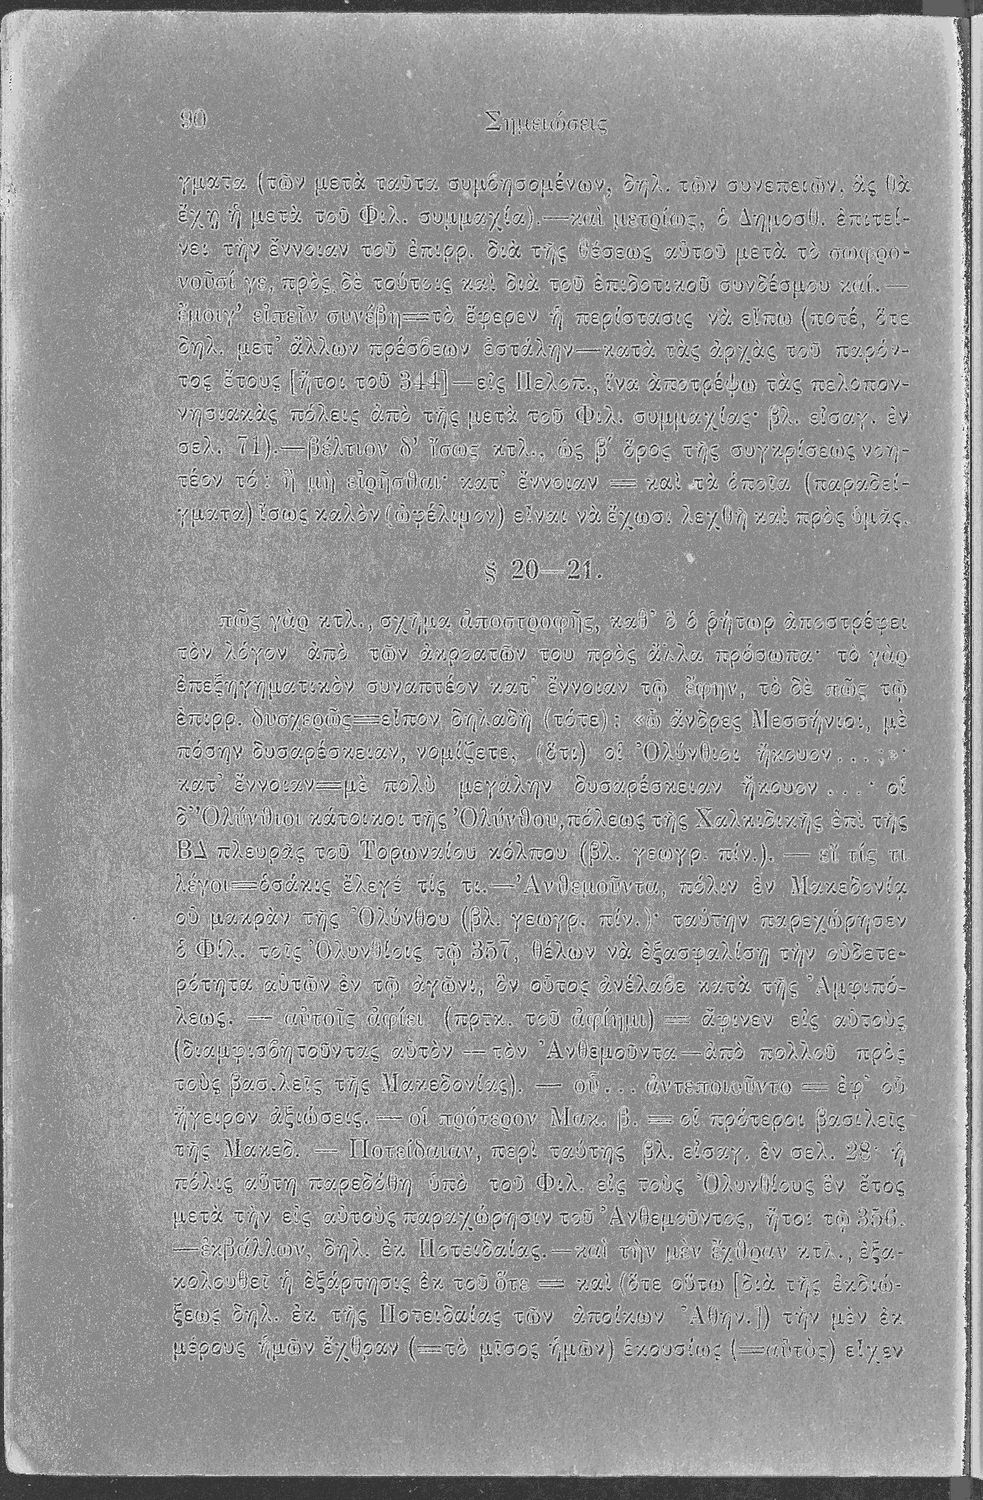 90 Σημειώσεις
γματα (τῶν μετὰ ταῦτα συμβησομένων, δηλ. τῶν συνεπειῶν, ἃς θὰ
ἔχῃ ἡ μετὰ τοῦ Φιλ. συμμαχία).—καὶ μετρίως, ὁ Δημοσθ. ἐπιτεί-
νει τὴν ἔννοιαν τοῦ ἐπιρρ. διὰ τῆς θέσεως αὐτοῦ μετὰ τὸ σωφρο-
νοῦσί γε, πρὸς δὲ τούτοις καὶ διὰ τοῦ ἐπιδοτικοῦ συνδέσμου καί.—
ἔμοιγ’ εἰπεῖν συνέβη=τὸ ἔφερεν ἡ περίστασις νὰ εἴπω (ποτέ, ὅτε
δηλ. μετ’ ἄλλων πρέσβεων ἐστάλην—κατὰ τὰς ἀρχὰς τοῦ παρόν-
τος ἔτους [ἤτοι τοῦ 344]—εἰς Πελοπ., ἵνα ἀποτρέψω τὰς πελοπον-
νησιακὰς πόλεις ἀπὸ τῆς μετὰ τοῦ Φιλ. συμμαχίας· βλ. εἰσαγ. ἐν
σελ. 71).—βέλτιον δ’ ἴσως κτλ., ὡς β′ ὅρος τῆς συγκρίσεως νοη-
τέον τό: ἢ μὴ εἰρῆσθαι· κατ’ ἔννοιαν = καὶ τὰ ὁποῖα (παραδεί-
γματα) ἴσως καλὸν (ὠφέλιμον) εἶναι νὰ ἔχωσι λεχθῆ καὶ πρὸς ὑμᾶς.
§ 20—21.
πῶς γὰρ κτλ., σχῆμα ἀποστροφῆς, καθ’ ὃ ὁ ῥήτωρ ἀποστρέφει
τὸν λόγον ἀπὸ τῶν ἀκροατῶν του πρὸς ἄλλα πρόσωπα· τὸ γὰρ
ἐπεξηγηματικὸν συναπτέον κατ’ ἔννοιαν τῷ ἔφην, τὸ δὲ πῶς τῷ
ἐπιρρ. δυσχερῶς=εἶπον δηλαδὴ (τότε): «ὦ ἄνδρες Μεσσήνιοι, μὲ
πόσην δυσαρέσκειαν, νομίζετε, (ὅτι) οἱ Ὀλύνθιοι ἤκουον...;»·
κατ’ ἔννοιαν=μὲ πολὺ μεγάλην δυσαρέσκειαν ἤκουον...· οἱ
δ’ Ὀλύνθιοι κάτοικοι τῆς Ὀλύνθου, πόλεως τῆς Χαλκιδικῆς ἐπὶ τῆς
ΒΔ πλευρᾶς τοῦ Τορωναίου κόλπου (βλ. γεωγρ. πίν.). — εἴ τίς τι
λέγοι=ὁσάκις ἔλεγέ τίς τι.—Ἀνθεμοῦντα, πόλιν ἐν Μακεδονίᾳ
οὐ μακρὰν τῆς Ὀλύνθου (βλ. γεωγρ. πίν.)· ταύτην παρεχώρησεν
ὁ Φίλ. τοῖς Ὀλυνθίοις τῷ 357, θέλων νὰ ἐξασφαλίσῃ τὴν οὐδετε-
ρότητα αὐτῶν ἐν τῷ ἀγῶνι, ὃν οὗτος ἀνέλαβε κατὰ τῆς Ἀμφιπό-
λεως. — αὐτοῖς ἀφίει (πρτκ. τοῦ ἀφίημι) = ἄφινεν εἰς αὐτοὺς
(διαμφισβητοῦντας αὐτὸν — τὸν Ἀνθεμοῦντα — ἀπὸ πολλοῦ πρὸς
τοὺς βασιλεῖς τῆς Μακεδονίας). — οὗ... ἀντεποιοῦντο = ἐφ’ οὗ
ἤγειρον ἀξιώσεις. — οἱ πρότερον Μακ. β. = οἱ πρότεροι βασιλεῖς
τῆς Μακεδ. — Ποτείδαιαν, περὶ ταύτης βλ. εἰσαγ. ἐν σελ. 28· ἡ
πόλις αὕτη παρεδόθη ὑπὸ τοῦ Φιλ. εἰς τοὺς Ὀλυνθίους ἓν ἔτος
μετὰ τὴν εἰς αὐτοὺς παραχώρησιν τοῦ Ἀνθεμοῦντος, ἤτοι τῷ 356.
—ἐκβάλλων, δηλ. ἐκ Ποτειδαίας.—καὶ τὴν μὲν ἔχθραν κτλ., ἐξα-
κολουθεῖ ἡ ἐξάρτησις ἐκ τοῦ ὅτε = καὶ (ὅτε οὕτω [διὰ τῆς ἐκδιώ-
ξεως δηλ. ἐκ τῆς Ποτειδαίας τῶν ἀποίκων Ἀθην.]) τὴν μὲν ἐκ
μέρους ἡμῶν ἔχθραν (=τὸ μῖσος ἡμῶν) ἑκουσίως (=αὐτὸς) εἶχεν